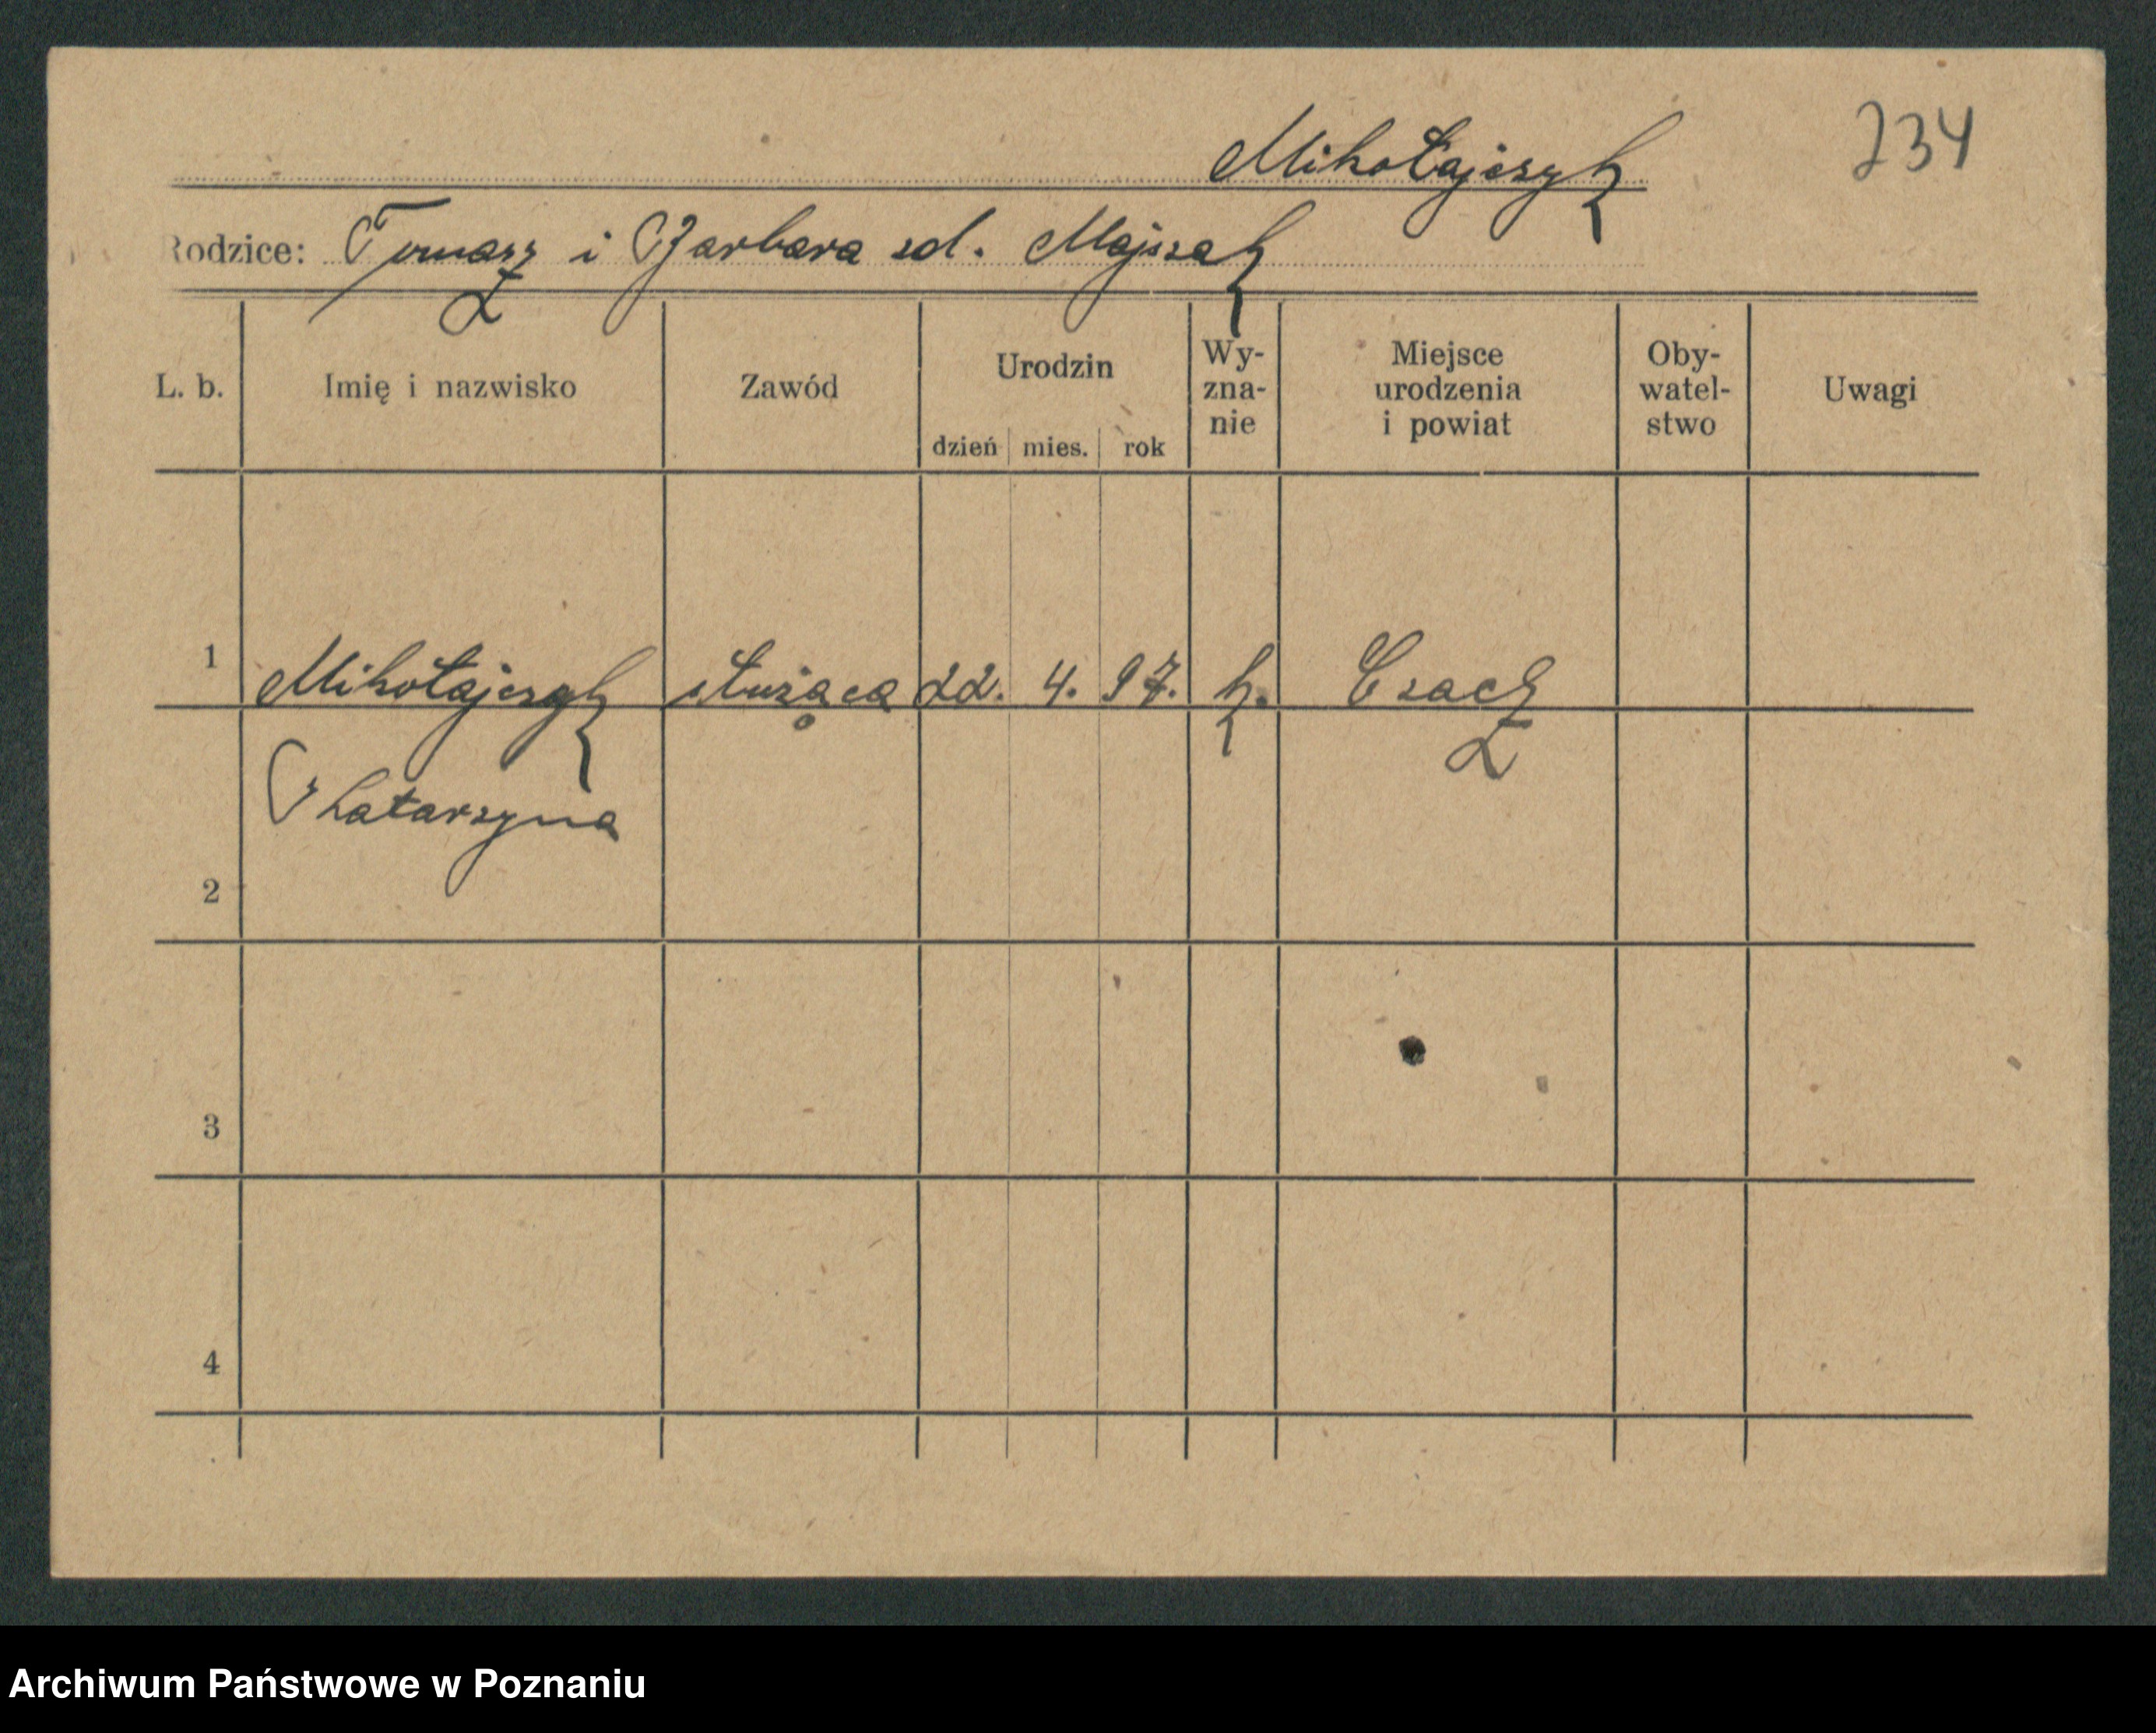 Mikołajczyk
234
Rodzice: Tomasz i Barbara zd. Majszak
L. b. Imię i nazwisko Zawód Urodzin dzień mies. rok Wy-zna-nie Miejsce urodzenia i powiat Oby-watel-stwo Uwagi
1 Mikołajczyk służąca 22. 4. 97. k. Czacz
Katarzyna
2
3
4
Archiwum Państwowe w Poznaniu